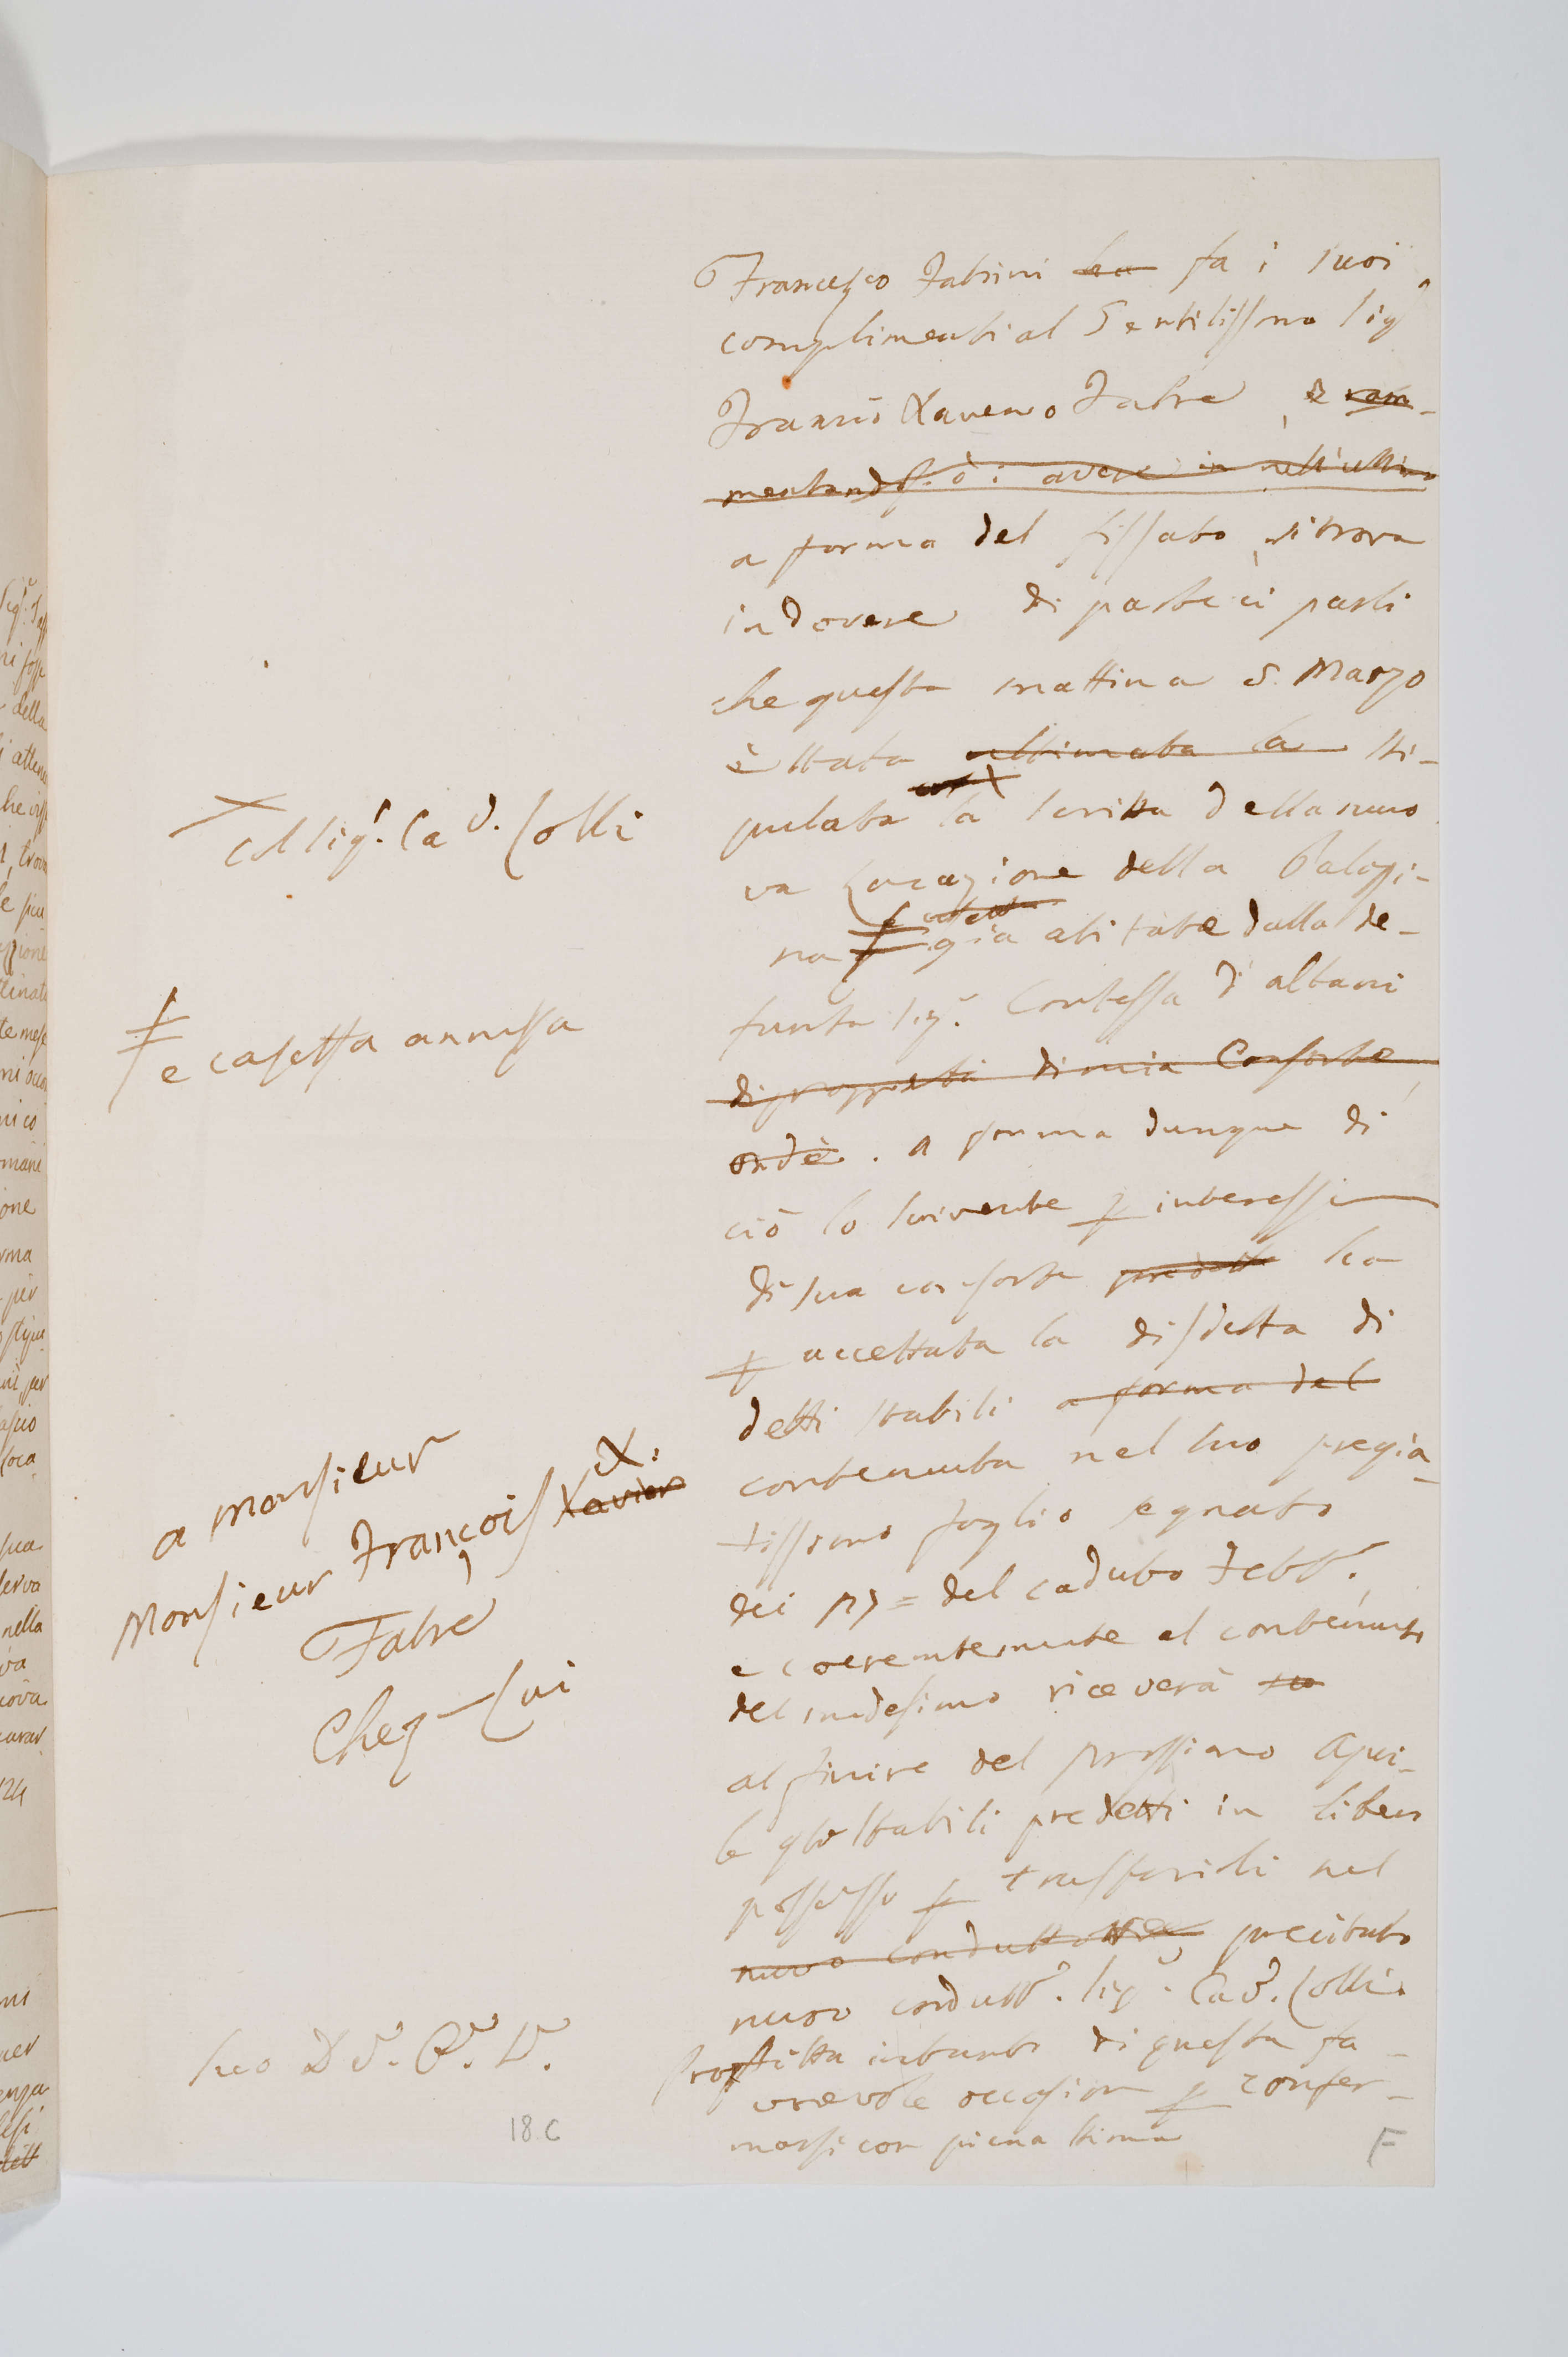 Francesco Fabrini ha fa i suoi
complimenti al Gentilissmo Sig
Franco Xaverio Fabre, e ram-
mentandosi di avere in nell'ultimo
a forma del fissato, si trova
in dovere di parteciparli
che questa mattina 5. Marzo
è stata ultimata la sti-
pulata la scritta della nuo
va Locazione della Palazi-
na già abitata dalla de-
funta Sig.ª Contessa d'albani
di proprietà di mia Consorte,
ondè. a forma dunque di
ciò lo scrivente p interesse
di sua consorte predetta ha
p accettata la disdetta di
detti stabili a forma del
contenuta nel suo pregia-
tissimo foglio segnato
dei = del caduto Febb.
e coerentemente al contenuto
del medesimo riceverà
al finire del prossimo Apri-
le stabili predetti in libero
possesso p trasferirli nel
nuovo conduttore, precitato
nuovo condutt. Sig. Cav. Colli.
Profitta intanto di questa fa-
vorevole occasione p confer-
marsi con piena stima
col Sig. Cav. Colli
e casetta annessa
a Monsieur
Monsieur François Xavier X.
Fabre
Chez-Lui
18 C
F